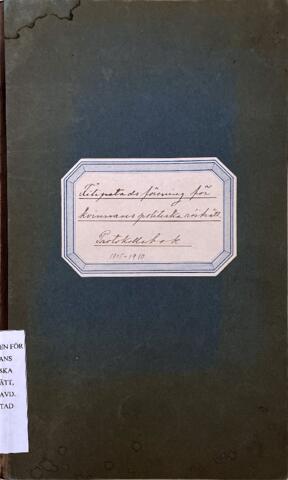 Filipstads förening för
kvinnans politiska rösträtt.
Protokollsbok
1905-1910
EN FÖR
ANS
SKA
ÄTT,
AVD.
TAD